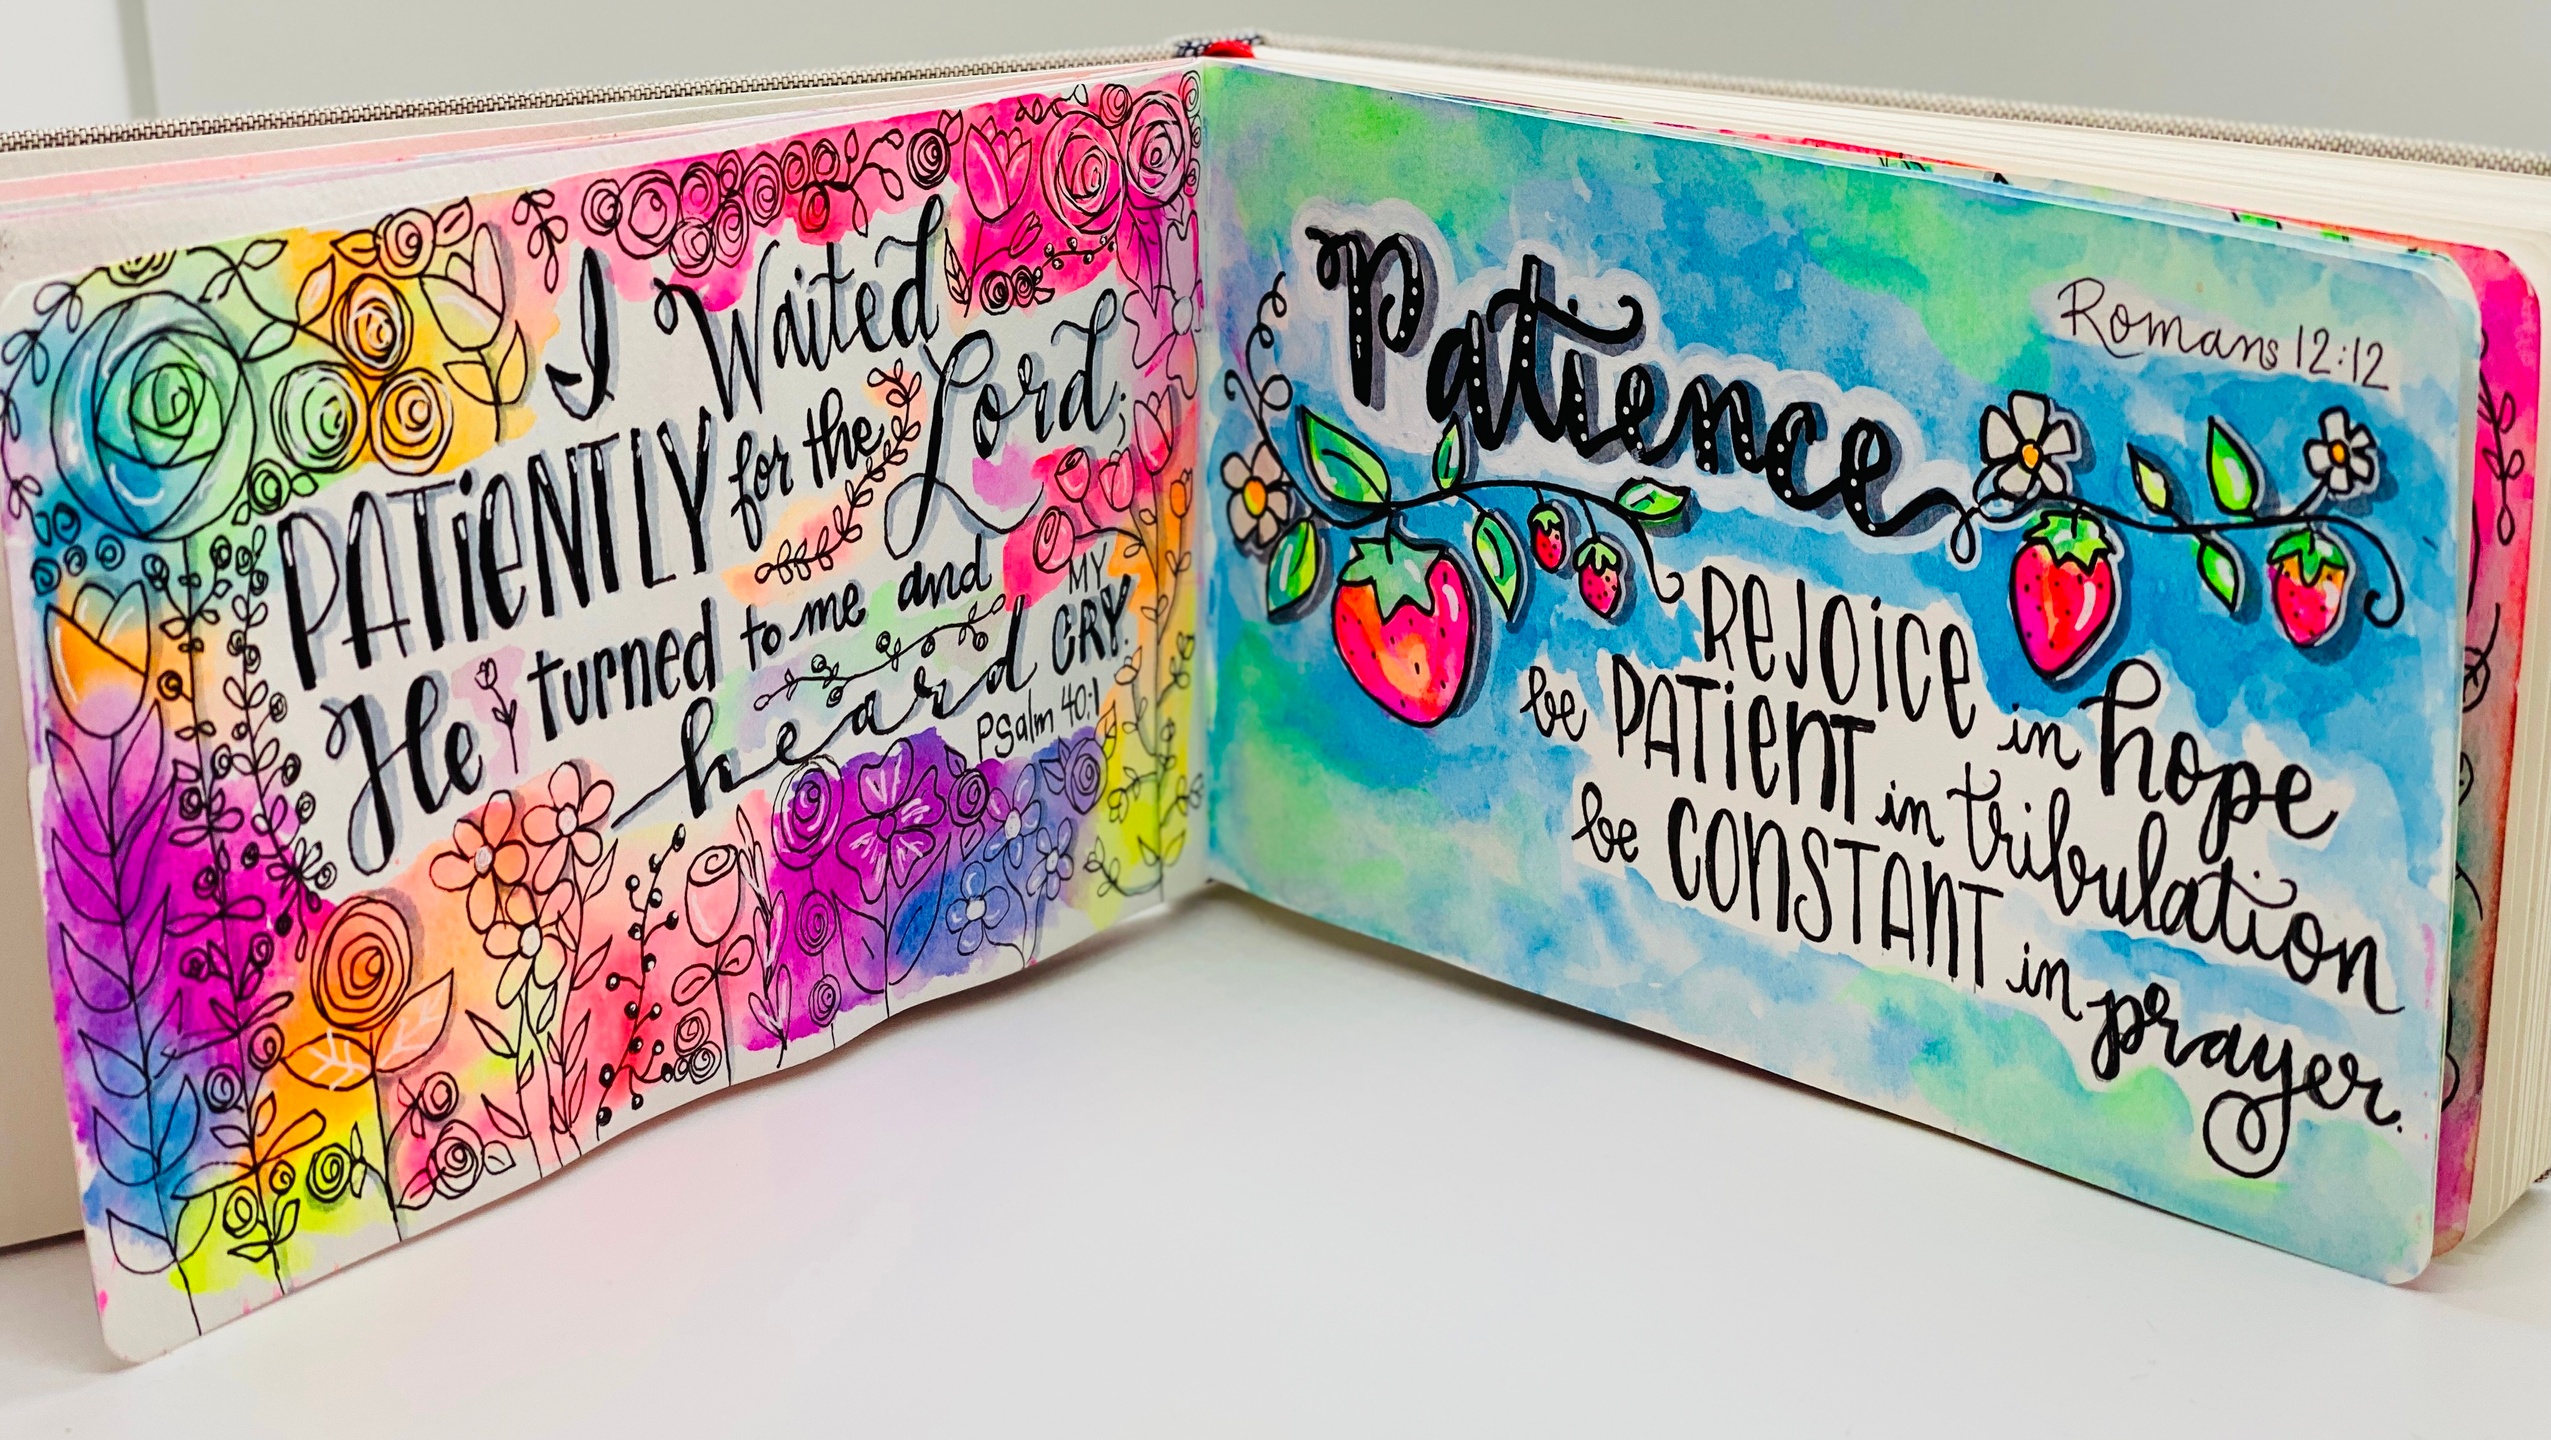 I Waited
PATiENTLY for the Lord;
He turned to me and
heard MY CRY.
Psalm 40:1
Patience
Romans 12:12
REJOiCE in hope
be PATiENT in tribulation
be CONSTANT in prayer.